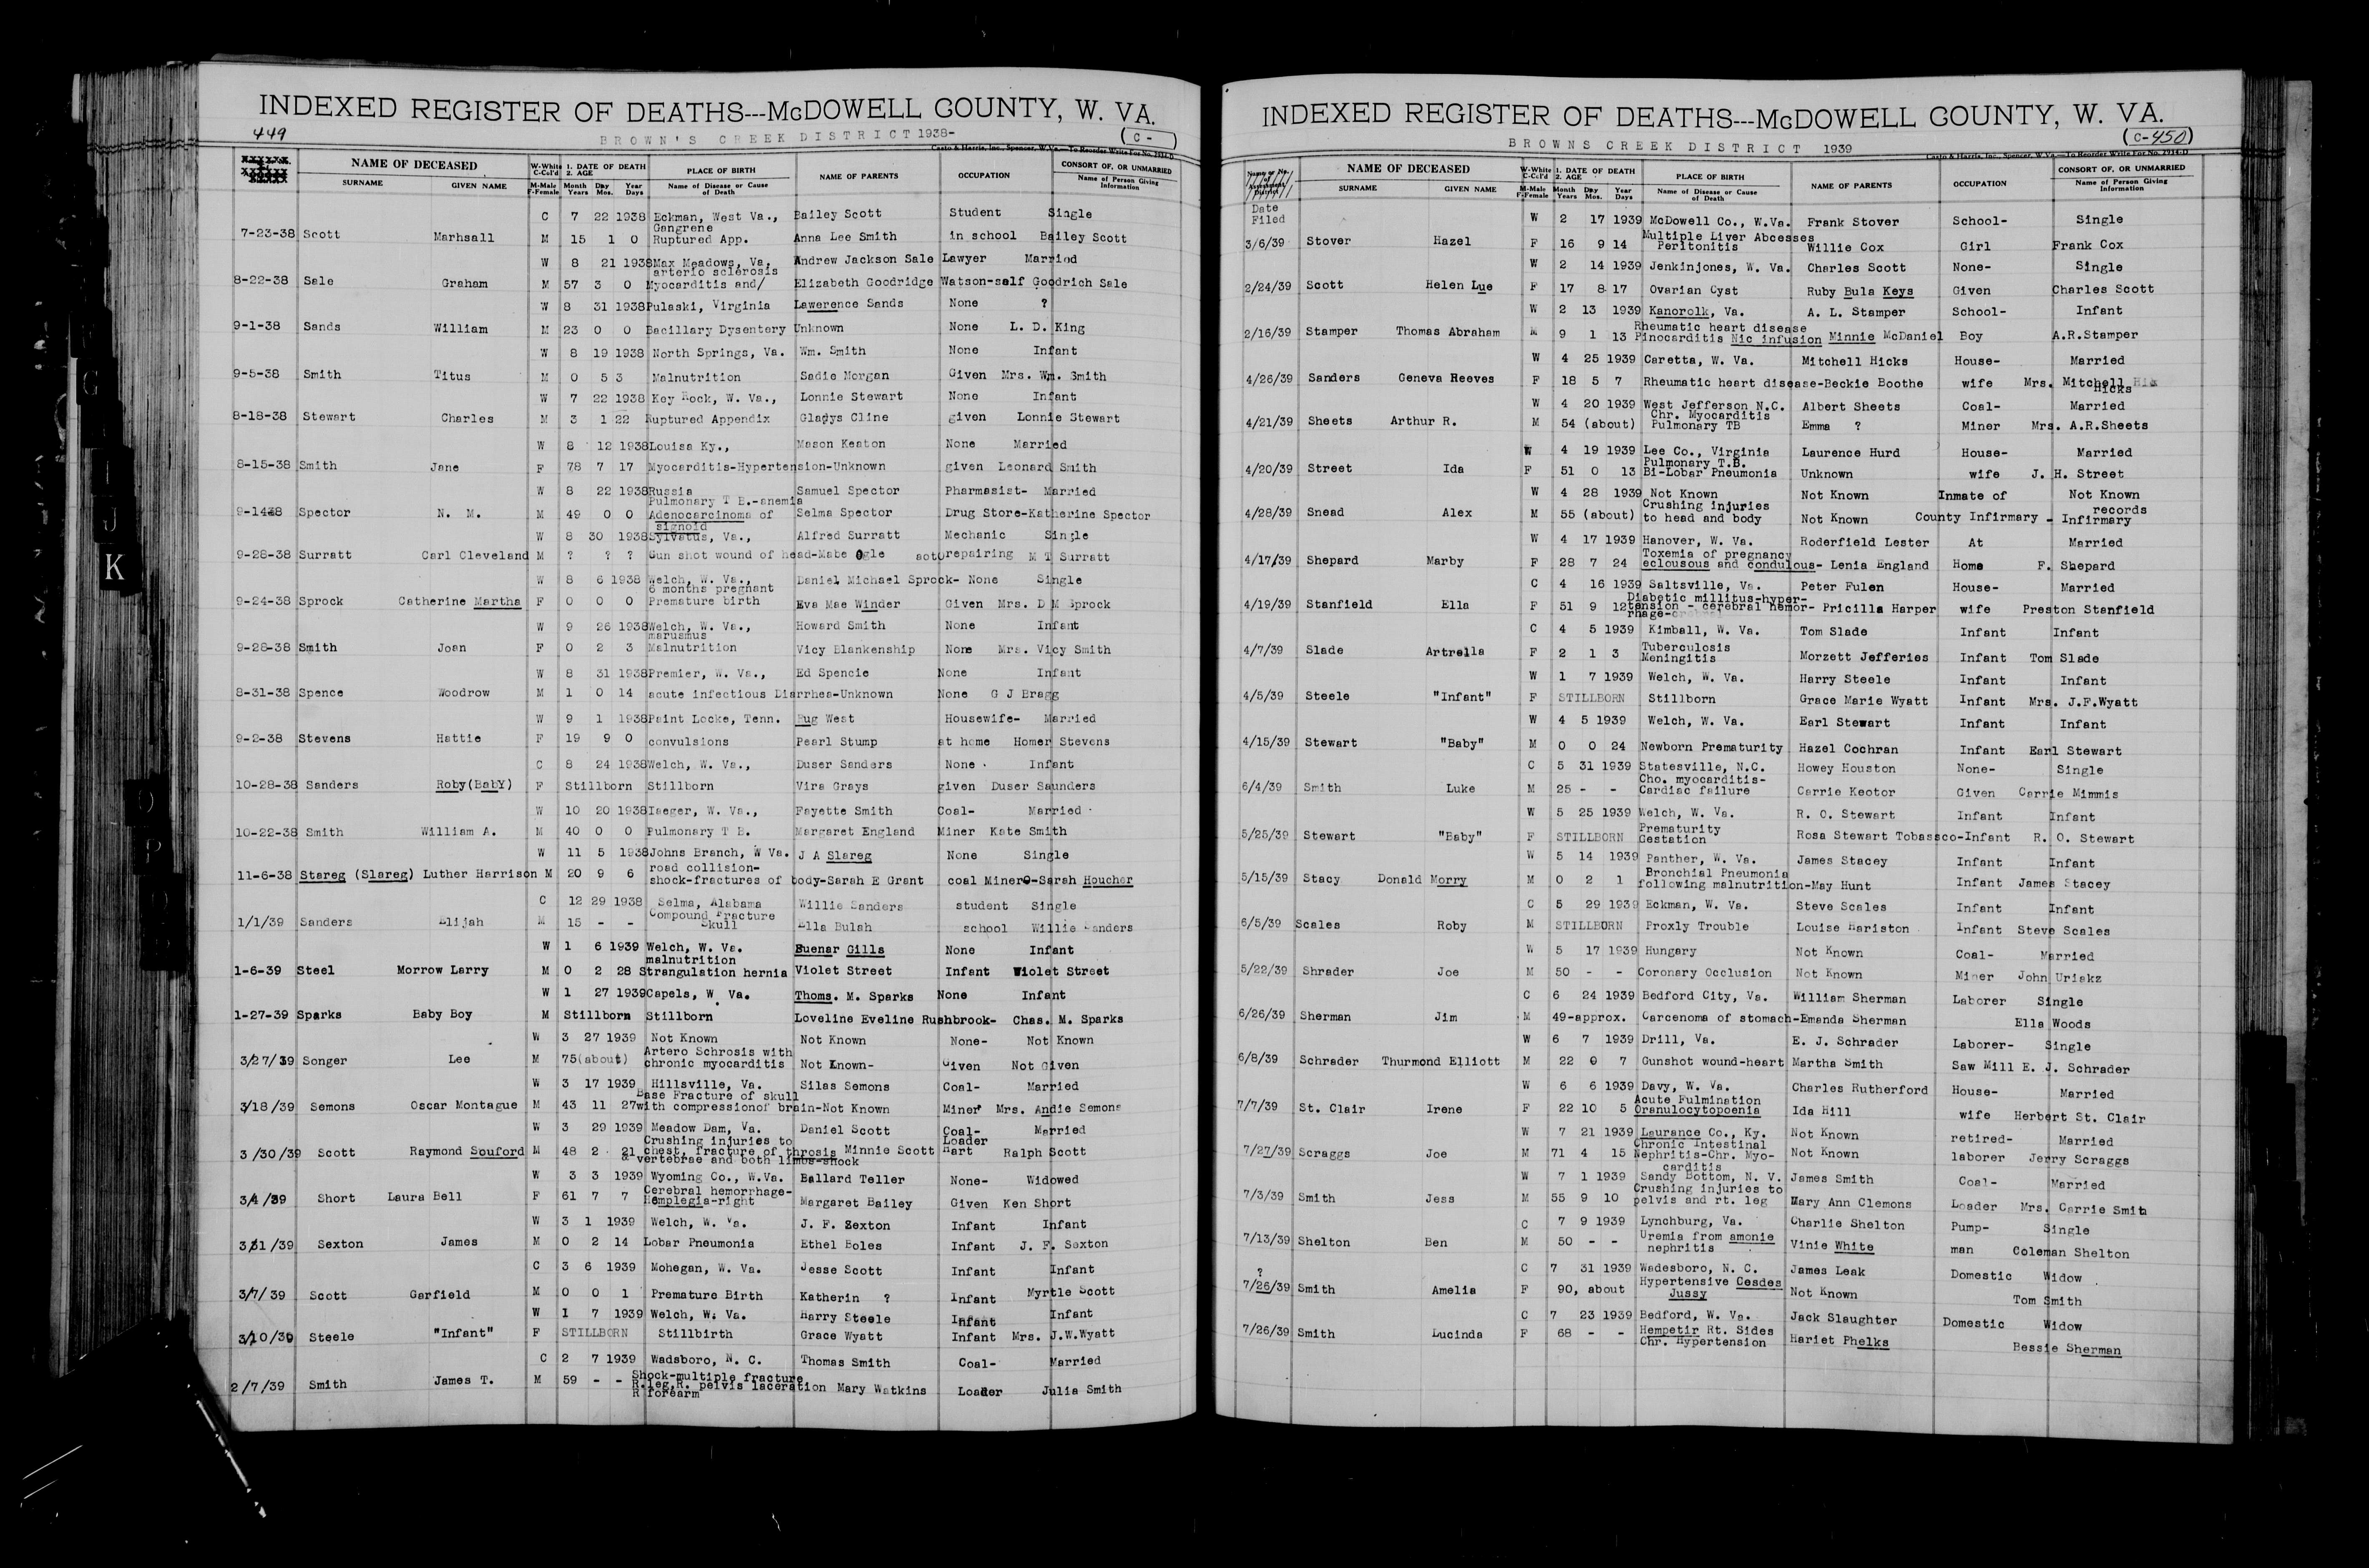 INDEXED REGISTER OF DEATHS---McDOWELL COUNTY, W. VA.
449
BROWN'S CREEK DISTRICT 1938-
(C - )
Casto & Harris, Inc., Spencer, W. Va.—To Reorder Write For No. 2934-D
NAME OF DECEASED W-White C-Col'd 1. DATE OF DEATH 2. AGE PLACE OF BIRTH NAME OF PARENTS OCCUPATION CONSORT OF, OR UNMARRIED
SURNAME GIVEN NAME M-Male F-Female Month Years Day Mos. Year Days Name of Disease or Cause of Death Name of Person Giving Information
C 7 22 1938 Eckman, West Va., Bailey Scott Student Single
Gangrene
7-23-38 Scott Marhsall M 15 1 0 Ruptured App. Anna Lee Smith in school Bailey Scott
W 8 21 1938 Max Meadows, Va. Andrew Jackson Sale Lawyer Married
arterio sclerosis
8-22-38 Sale Graham M 57 3 0 Myocarditis and/ Elizabeth Goodridge Watson-self Goodrich Sale
W 8 31 1938 Pulaski, Virginia Lawerence Sands None ?
9-1-38 Sands William M 23 0 0 Bacillary Dysentery Unknown None L. D. King
W 8 19 1938 North Springs, Va. Wm. Smith None Infant
9-5-38 Smith Titus M 0 5 3 Malnutrition Sadie Morgan Given Mrs. Wm. Smith
W 7 22 1938 Key Rock, W. Va., Lonnie Stewart None Infant
8-18-38 Stewart Charles M 3 1 22 Ruptured Appendix Gladys Cline given Lonnie Stewart
W 8 12 1938 Louisa Ky., Mason Keaton None Married
8-15-38 Smith Jane F 78 7 17 Myocarditis-Hypertension-Unknown given Leonard Smith
W 8 22 1938 Russia Samuel Spector Pharmasist- Married
Pulmonary T B.-anemia
9-1438 Spector N. M. M 49 0 0 Adenocarcinoma of Selma Spector Drug Store-Katherine Spector
signoid
W 8 30 1938 Sylvatus, Va., Alfred Surratt Mechanic Single
9-28-38 Surratt Carl Cleveland M ? ? ? Gun shot wound of head-Mabe Ogle aotorepairing M T Surratt
W 8 6 1938 Welch, W. Va., Daniel Michael Sprock- None Single
6 months pregnant
9-24-38 Sprock Catherine Martha F 0 0 0 Premature birth Eva Mae Winder Given Mrs. D M Sprock
W 9 26 1938 Welch, W. Va., Howard Smith None Infant
marusmus
9-28-38 Smith Joan F 0 2 3 Malnutrition Vicy Blankenship None Mrs. Vicy Smith
W 8 31 1938 Premier, W. Va., Ed Spencie None Infant
8-31-38 Spence Woodrow M 1 0 14 acute infectious Diarrhea-Unknown None G J Bragg
W 9 1 1938 Paint Locke, Tenn. Hug West Housewife- Married
9-2-38 Stevens Hattie F 19 9 0 convulsions Pearl Stump at home Homer Stevens
C 8 24 1938 Welch, W. Va., Duser Sanders None Infant
10-28-38 Sanders Roby(BabY) F Stillborn Stillborn Vira Grays given Duser Saunders
W 10 20 1938 Iaeger, W. Va., Fayette Smith Coal- Married
10-22-38 Smith William A. M 40 0 0 Pulmonary T B. Margaret England Miner Kate Smith
W 11 5 1938 Johns Branch, W Va. J A Slareg None Single
road collision-
11-6-38 Stareg (Slareg) Luther Harrison M 20 9 6 shock-fractures of body-Sarah E Grant coal Miner-Sarah Houcher
C 12 29 1938 Selma, Alabama Willie Sanders student Single
Compound Fracture
1/1/39 Sanders Elijah M 15 - - Skull Ella Bulah school Willie Sanders
W 1 6 1939 Welch, W. Va. Buenar Gills None Infant
malnutrition
1-6-39 Steel Morrow Larry M 0 2 28 Strangulation hernia Violet Street Infant Violet Street
W 1 27 1939 Capels, W Va. Thoms. M. Sparks None Infant
1-27-39 Sparks Baby Boy M Stillborn Stillborn Loveline Eveline Rushbrook- Chas. M. Sparks
W 3 27 1939 Not Known Not Known None- Not Known
Artero Schrosis with
3/27/39 Songer Lee M 75(about) chronic myocarditis Not Known- Given Not Given
W 3 17 1939 Hillsville, Va. Silas Semons Coal- Married
Base Fracture of skull
3/18/39 Semons Oscar Montague M 43 11 27 with compressionof brain-Not Known Miner Mrs. Andie Semons
W 3 29 1939 Meadow Dam, Va. Daniel Scott Coal- Married
Crushing injuries to Loader
3/30/39 Scott Raymond Souford M 48 2 21 chest, fracture of throsis Minnie Scott Hart Ralph Scott
& vertebrae and both limbs-shock
W 3 3 1939 Wyoming Co., W.Va. Ballard Teller None- Widowed
Cerebral hemorrhage-
3/4/39 Short Laura Bell F 61 7 7 Hemplegia-right Margaret Bailey Given Ken Short
W 3 1 1939 Welch, W. Va. J. F. Sexton Infant Infant
3/1/39 Sexton James M 0 2 14 Lobar Pneumonia Ethel Boles Infant J. F. Sexton
C 3 6 1939 Mohegan, W. Va. Jesse Scott Infant Infant
3/7/39 Scott Garfield M 0 0 1 Premature Birth Katherin ? Infant Myrtle Scott
W 1 7 1939 Welch, W. Va. Harry Steele Infant Infant
3/10/39 Steele "Infant" F STILLBORN Stillbirth Grace Wyatt Infant Mrs. J.W.Wyatt
C 2 7 1939 Wadsboro, N. C. Thomas Smith Coal- Married
Shock-multiple fracture
2/7/39 Smith James T. M 59 - - R.leg,R. pelvis laceration Mary Watkins Loader Julia Smith
R forearm
INDEXED REGISTER OF DEATHS---McDOWELL COUNTY, W. VA.
BROWNS CREEK DISTRICT 1939
(C-450)
Casto & Harris, Inc., Spencer, W. Va.—To Reorder Write For No. 2934-D
NAME OF DECEASED W-White C-Col'd 1. DATE OF DEATH 2. AGE PLACE OF BIRTH NAME OF PARENTS OCCUPATION CONSORT OF, OR UNMARRIED
SURNAME GIVEN NAME M-Male F-Female Month Years Day Mos. Year Days Name of Disease or Cause of Death Name of Person Giving Information
Date
Filed W 2 17 1939 McDowell Co., W.Va. Frank Stover School- Single
Multiple Liver Abcesses
3/6/39 Stover Hazel F 16 9 14 Peritonitis Willie Cox Girl Frank Cox
W 2 14 1939 Jenkinjones, W. Va. Charles Scott None- Single
2/24/39 Scott Helen Lue F 17 8 17 Ovarian Cyst Ruby Bula Keys Given Charles Scott
W 2 13 1939 Kanorolk, Va. A. L. Stamper School- Infant
Rheumatic heart disease
2/16/39 Stamper Thomas Abraham M 9 1 13 Pinocarditis Nic infusion Minnie McDaniel Boy A.R.Stamper
W 4 25 1939 Caretta, W. Va. Mitchell Hicks House- Married
4/26/39 Sanders Geneva Reeves F 18 5 7 Rheumatic heart disease-Beckie Boothe wife Mrs. Mitchell
Hicks
W 4 20 1939 West Jefferson N.C. Albert Sheets Coal- Married
Chr. Myocarditis
4/21/39 Sheets Arthur R. M 54 (about) Pulmonary TB Emma ? Miner Mrs. A.R.Sheets
W 4 19 1939 Lee Co., Virginia Laurence Hurd House- Married
Pulmonary T.B.
4/20/39 Street Ida F 51 0 13 Bi-Lobar Pneumonia Unknown wife J. H. Street
W 4 28 1939 Not Known Not Known Inmate of Not Known
Crushing injuries records
4/28/39 Snead Alex M 55 (about) to head and body Not Known County Infirmary - Infirmary
W 4 17 1939 Hanover, W. Va. Roderfield Lester At Married
Toxemia of pregnancy
4/17/39 Shepard Marby F 28 7 24 eclousous and condulous- Lenia England Home F. Shepard
C 4 16 1939 Saltsville, Va. Peter Fulen House- Married
Diabetic millitus-hyper-
4/19/39 Stanfield Ella F 51 9 12 tension - cerebral hemor- Pricilla Harper wife Preston Stanfield
rhage-
C 4 5 1939 Kimball, W. Va. Tom Slade Infant Infant
Tuberculosis
4/7/39 Slade Artrella F 2 1 3 Meningitis Morzett Jefferies Infant Tom Slade
W 1 7 1939 Welch, W. Va. Harry Steele Infant Infant
4/5/39 Steele "Infant" F STILLBORN Stillborn Grace Marie Wyatt Infant Mrs. J.F.Wyatt
W 4 5 1939 Welch, W. Va. Earl Stewart Infant Infant
4/15/39 Stewart "Baby" M 0 0 24 Newborn Prematurity Hazel Cochran Infant Earl Stewart
C 5 31 1939 Statesville, N.C. Howey Houston None- Single
Cho. myocarditis-
6/4/39 Smith Luke M 25 - - Cardiac failure Carrie Keotor Given Carrie Mimmis
W 5 25 1939 Welch, W. Va. R. O. Stewart Infant Infant
Prematurity
5/25/39 Stewart "Baby" F STILLBORN Gestation Rosa Stewart Tobassco-Infant R. O. Stewart
W 5 14 1939 Panther, W. Va. James Stacey Infant Infant
Bronchial Pneumonia
5/15/39 Stacy Donald Morry M 0 2 1 following malnutrition-May Hunt Infant James Stacey
C 5 29 1939 Eckman, W. Va. Steve Scales Infant Infant
6/5/39 Scales Roby M STILLBORN Proxly Trouble Louise Hariston Infant Steve Scales
W 5 17 1939 Hungary Not Known Coal- Married
5/22/39 Shrader Joe M 50 - - Coronary Occlusion Not Known Miner John Uriakz
C 6 24 1939 Bedford City, Va. William Sherman Laborer Single
6/26/39 Sherman Jim M 49-approx. Carcenoma of stomach-Emanda Sherman Ella Woods
W 6 7 1939 Drill, Va. E. J. Schrader Laborer- Single
6/8/39 Schrader Thurmond Elliott M 22 0 7 Gunshot wound-heart Martha Smith Saw Mill E. J. Schrader
W 6 6 1939 Davy, W. Va. Charles Rutherford House- Married
Acute Fulmination
7/7/39 St. Clair Irene F 22 10 5 Oranulocytopoenia Ida Hill wife Herbert St. Clair
W 7 21 1939 Laurance Co., Ky. Not Known retired- Married
Chronic Intestinal
7/27/39 Scraggs Joe M 71 4 15 Nephritis-Chr. Myo- Not Known laborer Jerry Scraggs
carditis
W 7 1 1939 Sandy Bottom, N. V. James Smith Coal- Married
Crushing injuries to
7/3/39 Smith Jess M 55 9 10 pelvis and rt. leg Mary Ann Clemons Loader Mrs. Carrie Smith
C 7 9 1939 Lynchburg, Va. Charlie Shelton Pump- Single
Uremia from amonie
7/13/39 Shelton Ben M 50 - - nephritis Vinie White man Coleman Shelton
? C 7 31 1939 Wadesboro, N. C. James Leak Domestic Widow
Hypertensive Cesdes
7/26/39 Smith Amelia F 90, about Jussy Not Known Tom Smith
C 7 23 1939 Bedford, W. Va. Jack Slaughter Domestic Widow
7/26/39 Smith Lucinda F 68 - - Hempetir Rt. Sides Hariet Phelks Bessie Sherman
Chr. Hypertension
G
I
J
K
O
P